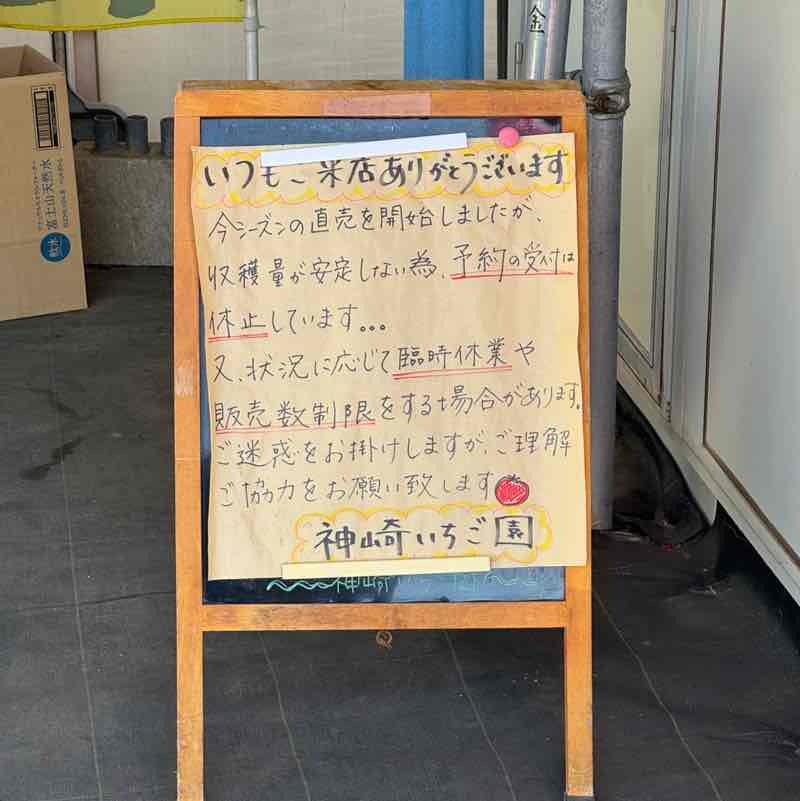 金
富士山天然水
軟水
いつもご来店ありがとうございます
今シーズンの直売を開始しましたが、
収穫量が安定しない為、予約の受付は
休止しています。。。
又、状況に応じて臨時休業や
販売数制限をする場合があります。
ご迷惑をお掛けしますが、ご理解
ご協力をお願い致します
神崎いちご園